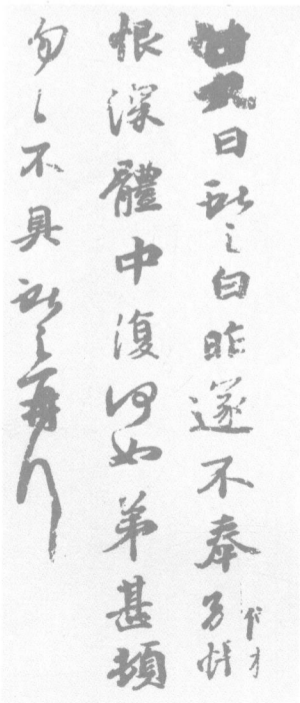 廿九日献之白昨遂不奉別悵
恨深體中復何如弟甚頓
匆匆不具献之再拜